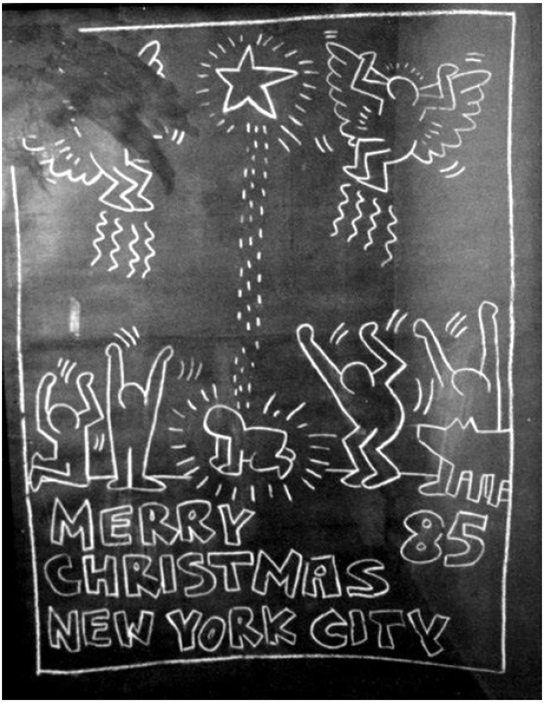 MERRY
85
CHRISTMAS
NEW YORK CITY